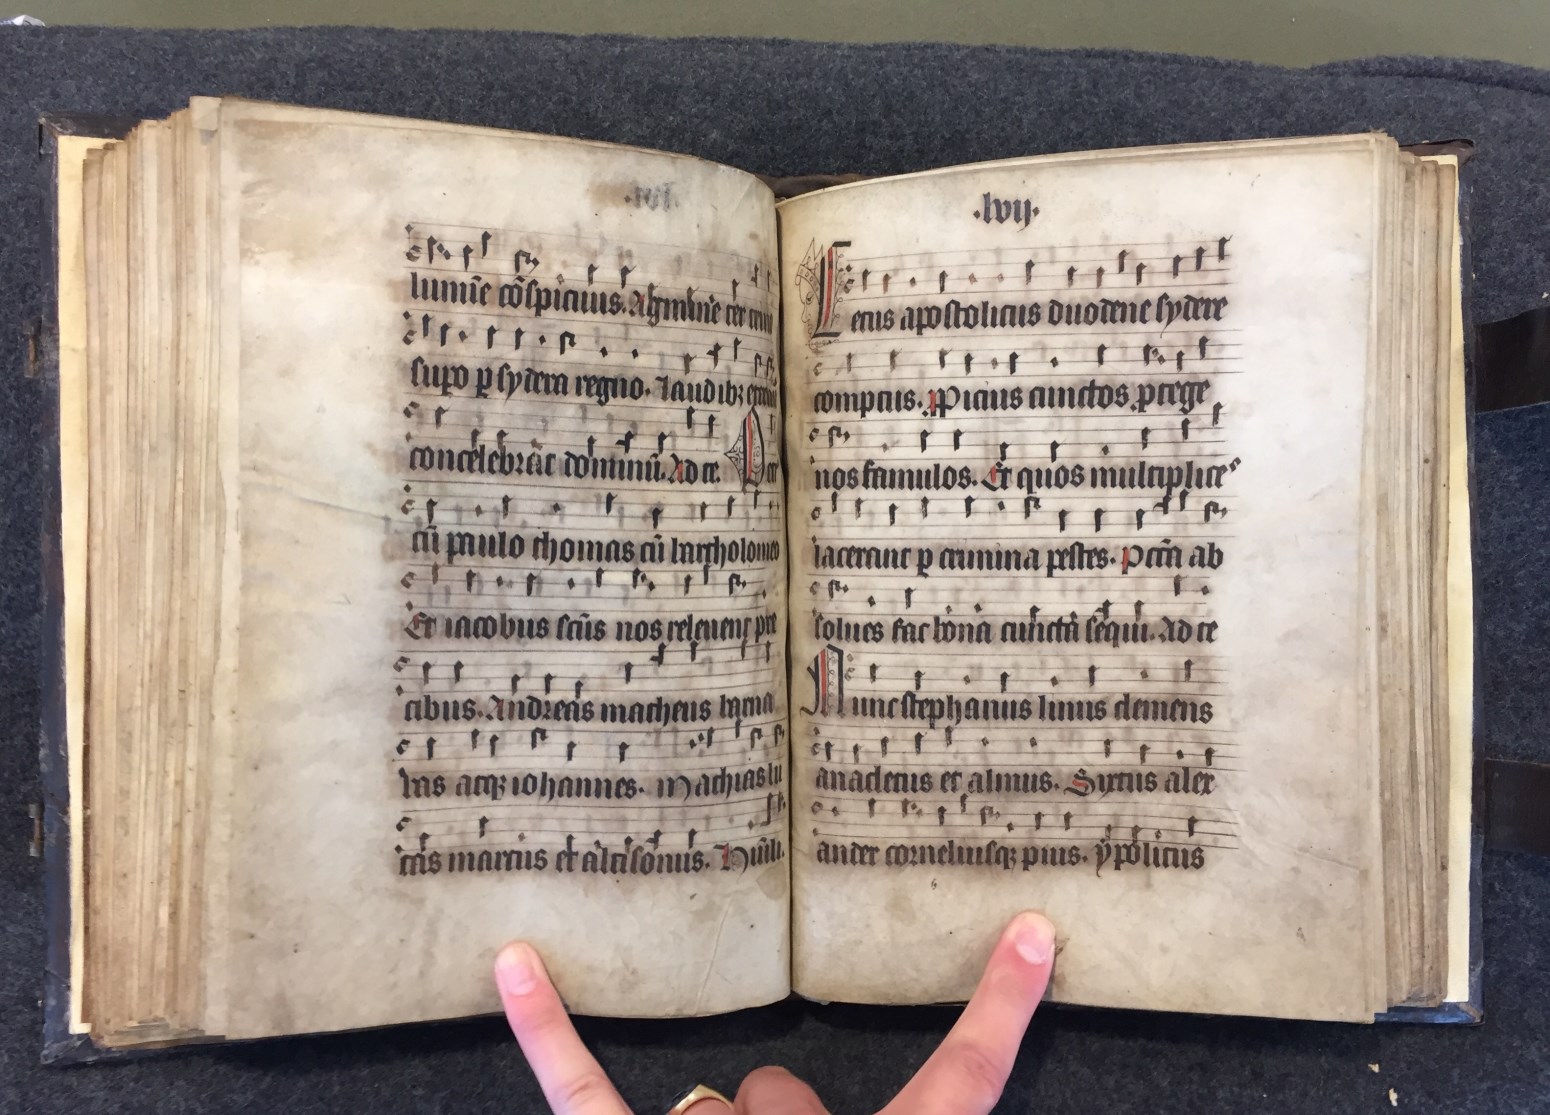 lumīe cōspicuus. Agminīe ter
supo p sydera regno. Laudibꝫ
concelebrāt dominū. Ad te. Pet
cū paulo thomas cū bartholomeo
Et iacobus scūs nos releuent pre
cibus. Andreas matheus barna
bas atqꝫ iohannes. Mathias lu
cas marcus et altisonus. Huili.
.lvij.
Letus apostolicus duodene sydere
comptus. Picius cunctos ptege
nos famulos. Et quos multiplices
lacerant p crimina pestes. Pctā ab
solues fac bona cuncta sequi. Ad te
Nunc stephanus linus clemens
anacletus et almus. Sixtus alex
ander corneliusqꝫ pius. ypolitus